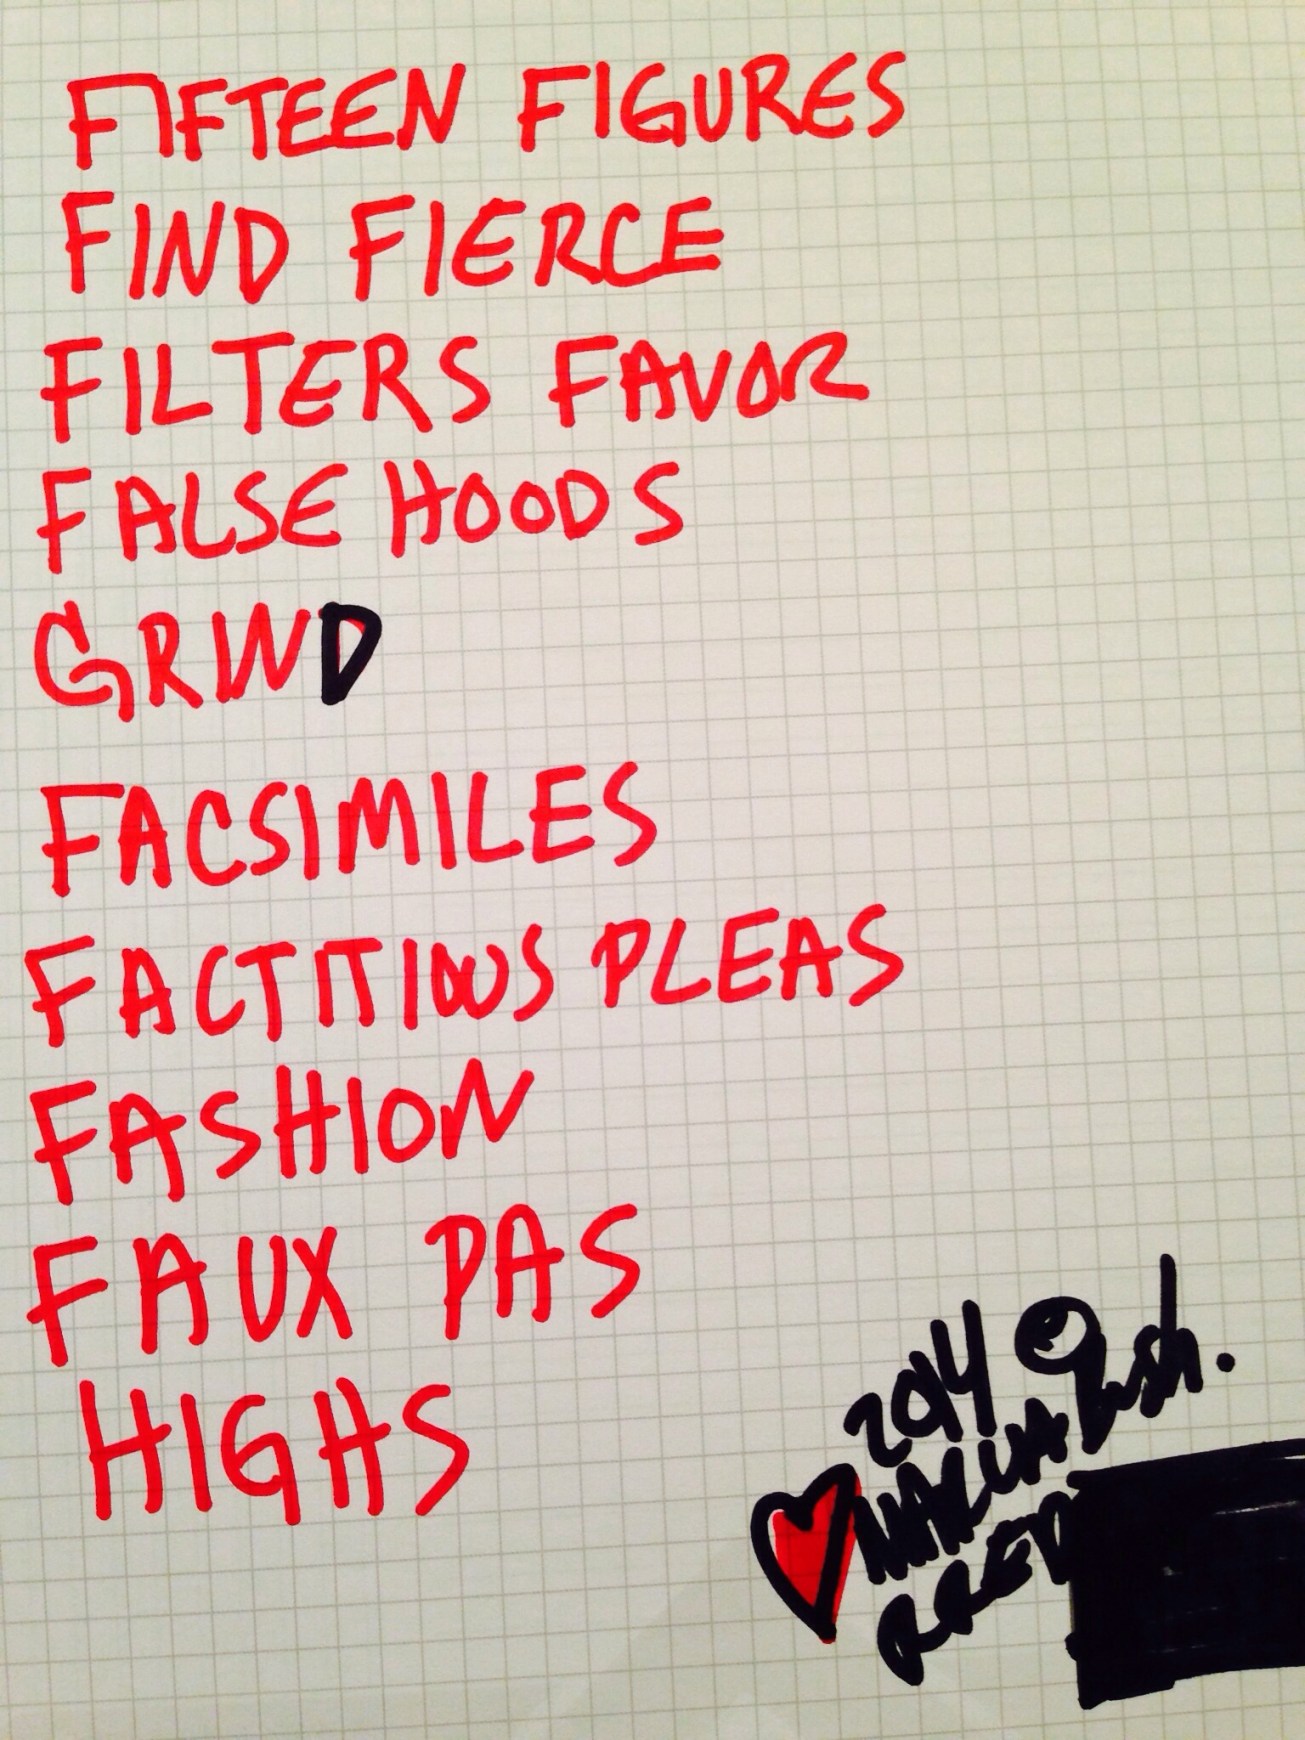 FIFTEEN FIGURES
FIND FIERCE
FILTERS FAVOR
FALSE HOODS
GRIND
FACSIMILES
FACTITIOUS PLEAS
FASHION
FAUX PAS
HIGHS
2014